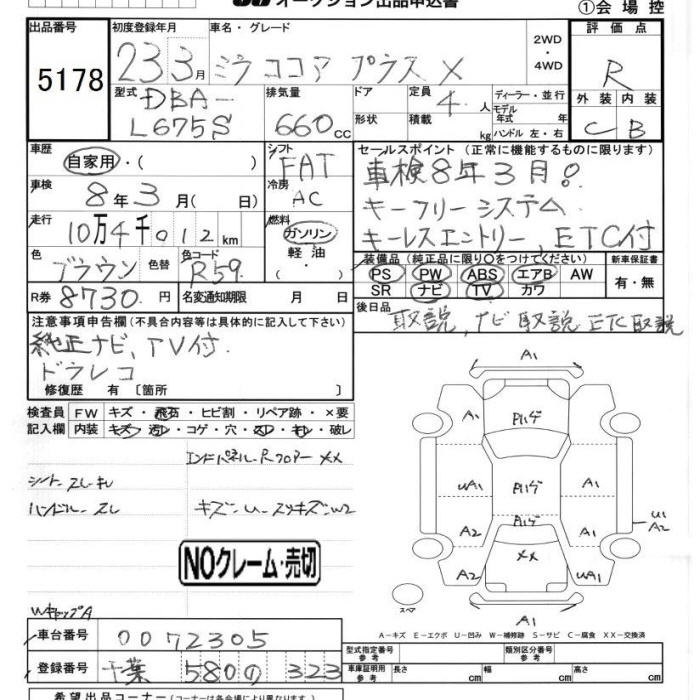 オークション出品申込書
①会場控
出品番号
5178
初度登録年月
車名・グレード
23 3月
ミラココア プラス X
2WD
・
4WD
評価点
R
外装 内装
C B
型式
DBA-
L675S
排気量
660cc
ドア
形状
定員
4人
積載
kg
ディーラー・並行
モデル
年式 年
ハンドル 左・右
車歴
自家用・( )
シフト
FAT
車検
8年3月( 日)
冷房
AC
走行
10万4千012km
燃料
ガソリン
・
軽油
・
色
ブラウン
色替
色コード
R59
R券 8730円
名変通知期限 月 日
セールスポイント(正常に機能するものに限ります)
車検8年3月!
キーフリーシステム
キーレスエントリー, ETC付
装備品(純正品に限り○をつけてください)
PS PW ABS エアB AW
SR ナビ TV カワ
新車保証書
有・無
後日品
取説, ナビ取説 ETC取説
注意事項申告欄(不具合内容等は具体的に記入して下さい)
純正ナビ、TV付
ドラレコ
修復歴 有〔箇所 〕
検査員
記入欄
FW キズ・飛石・ヒビ割・リペア跡・×要
内装 キズ・汚レ・コゲ・穴・スレ・キレ・破レ
エンドパネル-Rフロアー XX
シート-スレキレ
ハンドル-スレ
NOクレーム・売切
WキャップA
A1
A1 Pハゲ A1
UA1 Pハゲ A1
Pハゲ
A2 A2
A2 XX UA1
A1
U1
A2
A1
スペア
A-キズ E-エクボ U-凹み W-補修跡 S-サビ C-腐食 XX-交換済
車台番号
0072305
登録番号
千葉 580 の 323
型式指定番号
参考
類別区分番号
参考
車庫証明用
参考
長さ cm
幅 cm
高さ cm
希望出品コーナー(コーナーは各会場により異なります。)